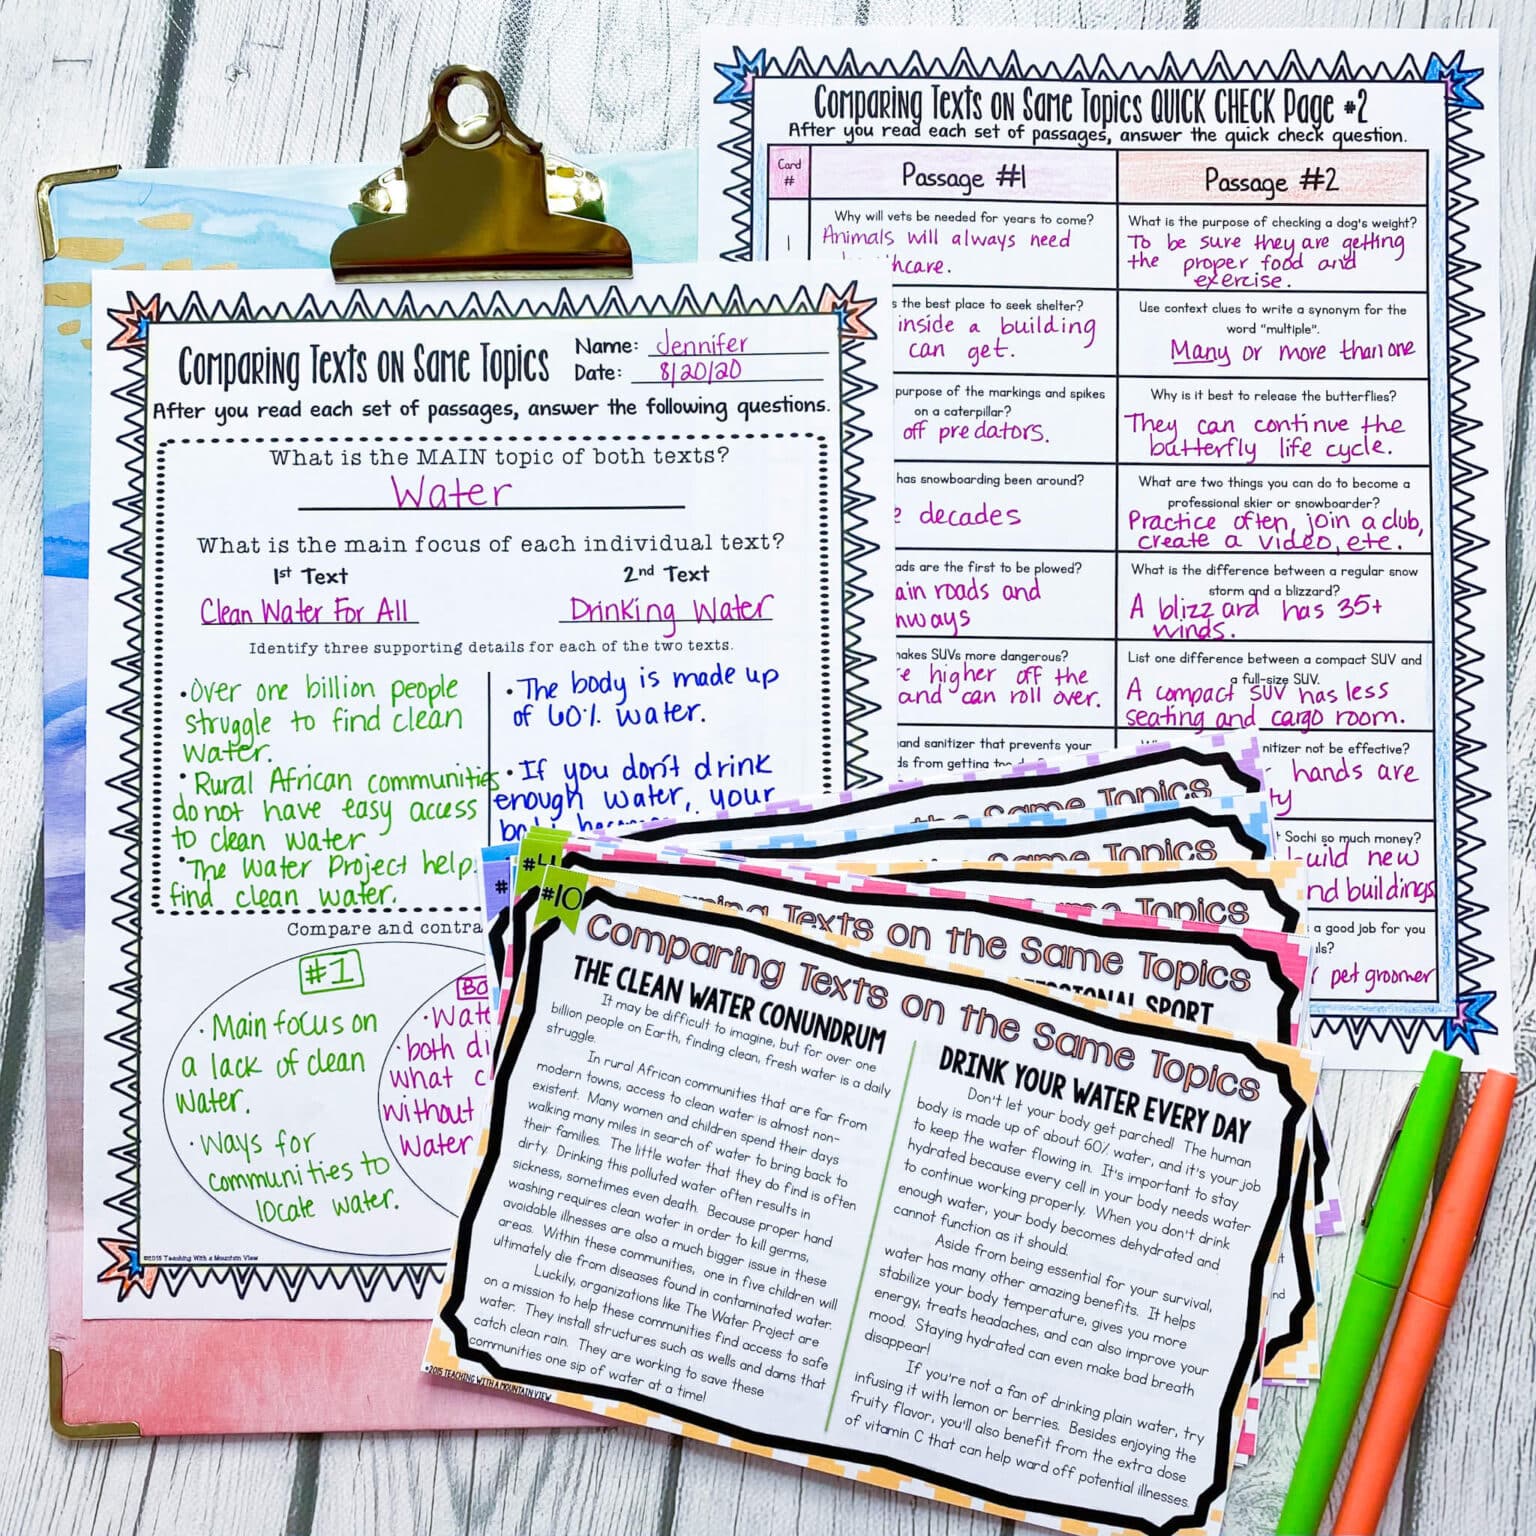 Comparing Texts on Same Topics
Name: Jennifer
Date: 8/20/20
After you read each set of passages, answer the following questions.
What is the MAIN topic of both texts?
Water
What is the main focus of each individual text?
1st Text
2nd Text
Clean Water For All
Drinking Water
Identify three supporting details for each of the two texts.
• Over one billion people
struggle to find clean
water.
• Rural African communities
do not have easy access
to clean water
• The Water Project help
find clean water.
• The body is made up
of 60% water.
• If you don't drink
enough water, your
Compare and
#1
• Main focus on
a lack of clean
water.
• Ways for
communities to
locate water.
• both
what
without
water
©2015 Teaching With a Mountain View
Comparing Texts on Same Topics QUICK CHECK Page #2
After you read each set of passages, answer the quick check question.
Card
#
Passage #1
Passage #2
1
Why will vets be needed for years to come?
Animals will always need
What is the purpose of checking a dog's weight?
To be sure they are getting
the proper food and
exercise.
the best place to seek shelter?
inside a building
can get.
Use context clues to write a synonym for the
word "multiple".
Many or more than one
purpose of the markings and spikes
on a caterpillar?
off predators.
Why is it best to release the butterflies?
They can continue the
butterfly life cycle.
has snowboarding been around?
decades
What are two things you can do to become a
professional skier or snowboarder?
Practice often, join a club,
create a video, etc.
are the first to be plowed?
roads and
What is the difference between a regular snow
storm and a blizzard?
A blizzard has 35+
winds.
SUVs more dangerous?
higher off the
and can roll over.
List one difference between a compact SUV and
a full-size SUV.
A compact SUV has less
seating and cargo room.
sanitizer that prevents your
from getting
not be effective?
hands are
Sochi so much money?
new
buildings
a good job for you
pet groomer
Same Topics
Same Topics
Same Topics
Texts on the Same Topics
SPORT
#10
Comparing Texts on the Same Topics
THE CLEAN WATER CONUNDRUM
It may be difficult to imagine, but for over one
billion people on Earth, finding clean, fresh water is a daily
struggle.
In rural African communities that are far from
modern towns, access to clean water is almost non-
existent. Many women and children spend their days
walking many miles in search of water to bring back to
their families. The little water that they do find is often
dirty. Drinking this polluted water often results in
sickness, sometimes even death. Because proper hand
washing requires clean water in order to kill germs,
avoidable illnesses are also a much bigger issue in these
areas. Within these communities, one in five children will
ultimately die from diseases found in contaminated water.
Luckily, organizations like The Water Project are
on a mission to help these communities find access to safe
water. They install structures such as wells and dams that
catch clean rain. They are working to save these
communities one sip of water at a time!
©2015 TEACHING WITH A MOUNTAIN VIEW
DRINK YOUR WATER EVERY DAY
Don't let your body get parched! The human
body is made up of about 60% water, and it's your job
to keep the water flowing in. It's important to stay
hydrated because every cell in your body needs water
to continue working properly. When you don't drink
enough water, your body becomes dehydrated and
cannot function as it should.
Aside from being essential for your survival,
water has many other amazing benefits. It helps
stabilize your body temperature, gives you more
energy, treats headaches, and can also improve your
mood. Staying hydrated can even make bad breath
disappear!
If you're not a fan of drinking plain water, try
infusing it with lemon or berries. Besides enjoying the
fruity flavor, you'll also benefit from the extra dose
of vitamin C that can help ward off potential illnesses.